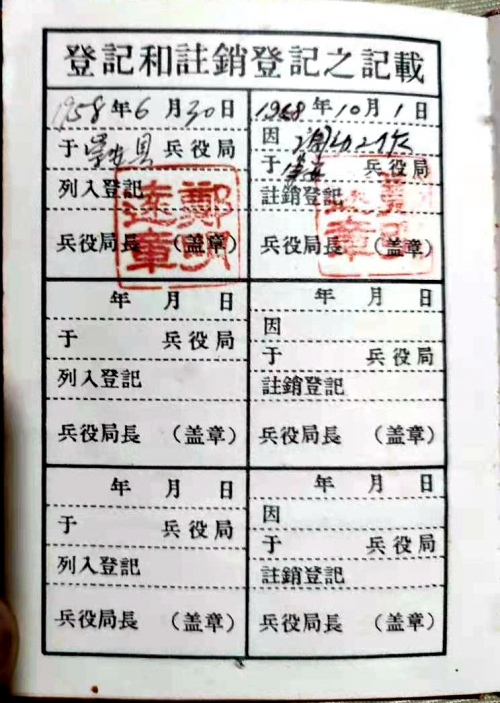 登記和註銷登記之記載
1958年6月30日
于崇安县 兵役局
列入登記
兵役局長 (盖章)
鄭明遠章
1968年10月1日
因
于崇安 兵役局
註銷登記
兵役局長 (盖章)
年 月 日
于 兵役局
列入登記
兵役局長 (盖章)
年 月 日
因
于 兵役局
註銷登記
兵役局長 (盖章)
年 月 日
于 兵役局
列入登記
兵役局長 (盖章)
年 月 日
因
于 兵役局
註銷登記
兵役局長 (盖章)